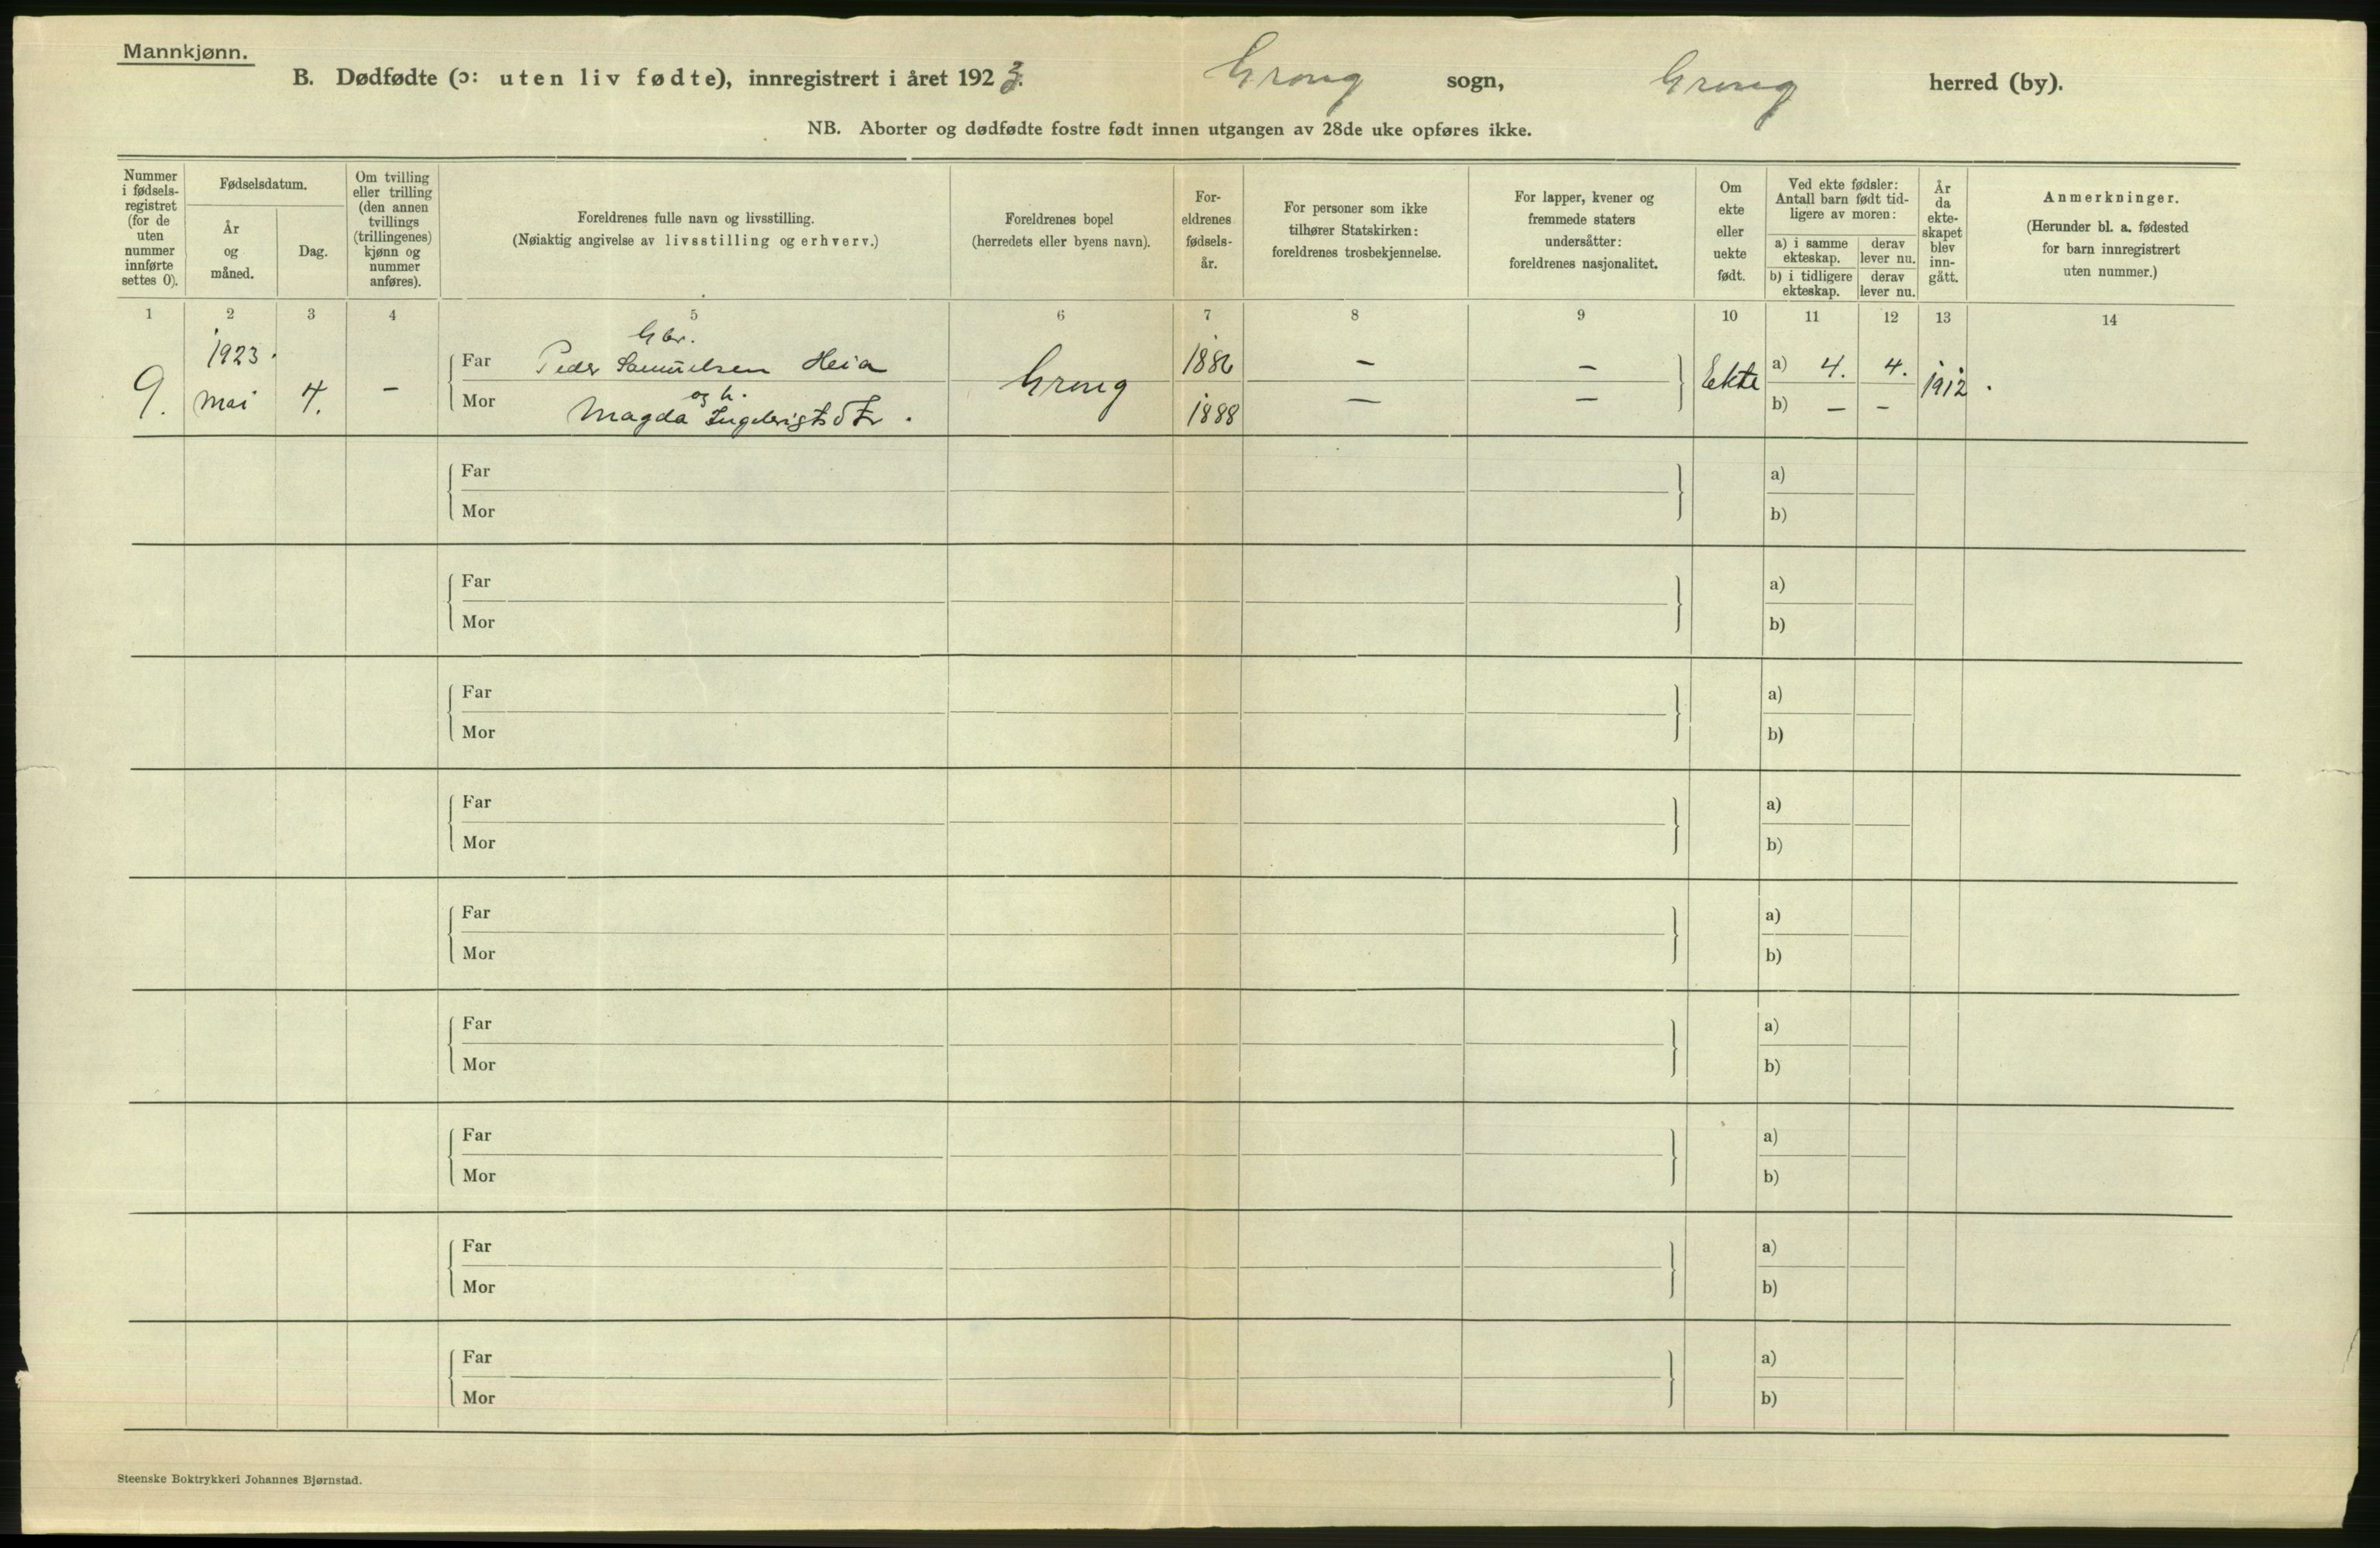 Mannkjønn.
B. Dødfødte (ɔ: uten liv fødte), innregistrert i året 1923. Grong sogn, Grong herred (by).
NB. Aborter og dødfødte fostre født innen utgangen av 28de uke opføres ikke.
Nummer i fødsels-registret (for de uten nummer innførte settes 0).
Fødselsdatum.
År og måned.
Dag.
Om tvilling eller trilling (den annen tvillings (trillingenes) kjønn og nummer anføres).
Foreldrenes fulle navn og livsstilling.
(Nøiaktig angivelse av livsstilling og erhverv.)
Foreldrenes bopel
(herredets eller byens navn).
For-eldrenes fødsels-år.
For personer som ikke tilhører Statskirken: foreldrenes trosbekjennelse.
For lapper, kvener og fremmede staters undersåtter: foreldrenes nasjonalitet.
Om ekte eller uekte født.
Ved ekte fødsler: Antall barn født tid-ligere av moren:
a) i samme ekteskap.
derav lever nu.
b) i tidligere ekteskap.
derav lever nu.
År da ekte-skapet blev inn-gått.
Anmerkninger.
(Herunder bl. a. fødested for barn innregistrert uten nummer.)
1 2 3 4 5 6 7 8 9 10 11 12 13 14
Gbr.
9. 1923. Mai 4. – Far Peder Samuelsen Heia Grong 1886 – – Ekte a) 4. 4. 1912.
og h.
Mor Magda Ingebrigtsdtr. 1888 – – b) – –
Far a)
Mor b)
Far a)
Mor b)
Far a)
Mor b)
Far a)
Mor b)
Far a)
Mor b)
Far a)
Mor b)
Far a)
Mor b)
Far a)
Mor b)
Far a)
Mor b)
Steenske Boktrykkeri Johannes Bjørnstad.